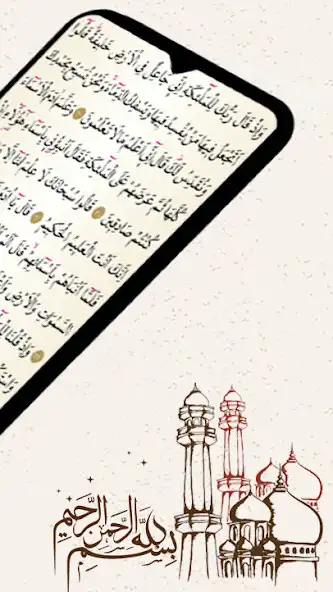 وَإِذْ قَالَ رَبُّكَ لِلْمَلَٰٓئِكَةِ إِنِّي جَاعِلٌ فِي ٱلْأَرْضِ خَلِيفَةً قَالُوٓا۟
أَتَجْعَلُ فِيهَا مَن يُفْسِدُ فِيهَا وَيَسْفِكُ ٱلدِّمَآءَ وَنَحْنُ نُسَبِّحُ بِحَمْدِكَ
وَنُقَدِّسُ لَكَ قَالَ إِنِّيٓ أَعْلَمُ مَا لَا تَعْلَمُونَ وَعَلَّمَ ءَادَمَ ٱلْأَسْمَآءَ
كُلَّهَا ثُمَّ عَرَضَهُمْ عَلَى ٱلْمَلَٰٓئِكَةِ فَقَالَ أَنۢبِـُٔونِي بِأَسْمَآءِ هَٰٓؤُلَآءِ
كُنتُمْ صَٰدِقِينَ قَالُوا۟ سُبْحَٰنَكَ لَا عِلْمَ لَنَآ إِلَّا
إِنَّكَ أَنتَ ٱلْعَلِيمُ ٱلْحَكِيمُ قَالَ
فَلَمَّآ أَنۢبَأَهُم بِأَسْمَآئِهِمْ قَالَ
ٱلسَّمَٰوَٰتِ وَٱلْأَرْضِ
وَإِذْ قُلْنَا
بِسْمِ اللَّهِ الرَّحْمَنِ الرَّحِيمِ